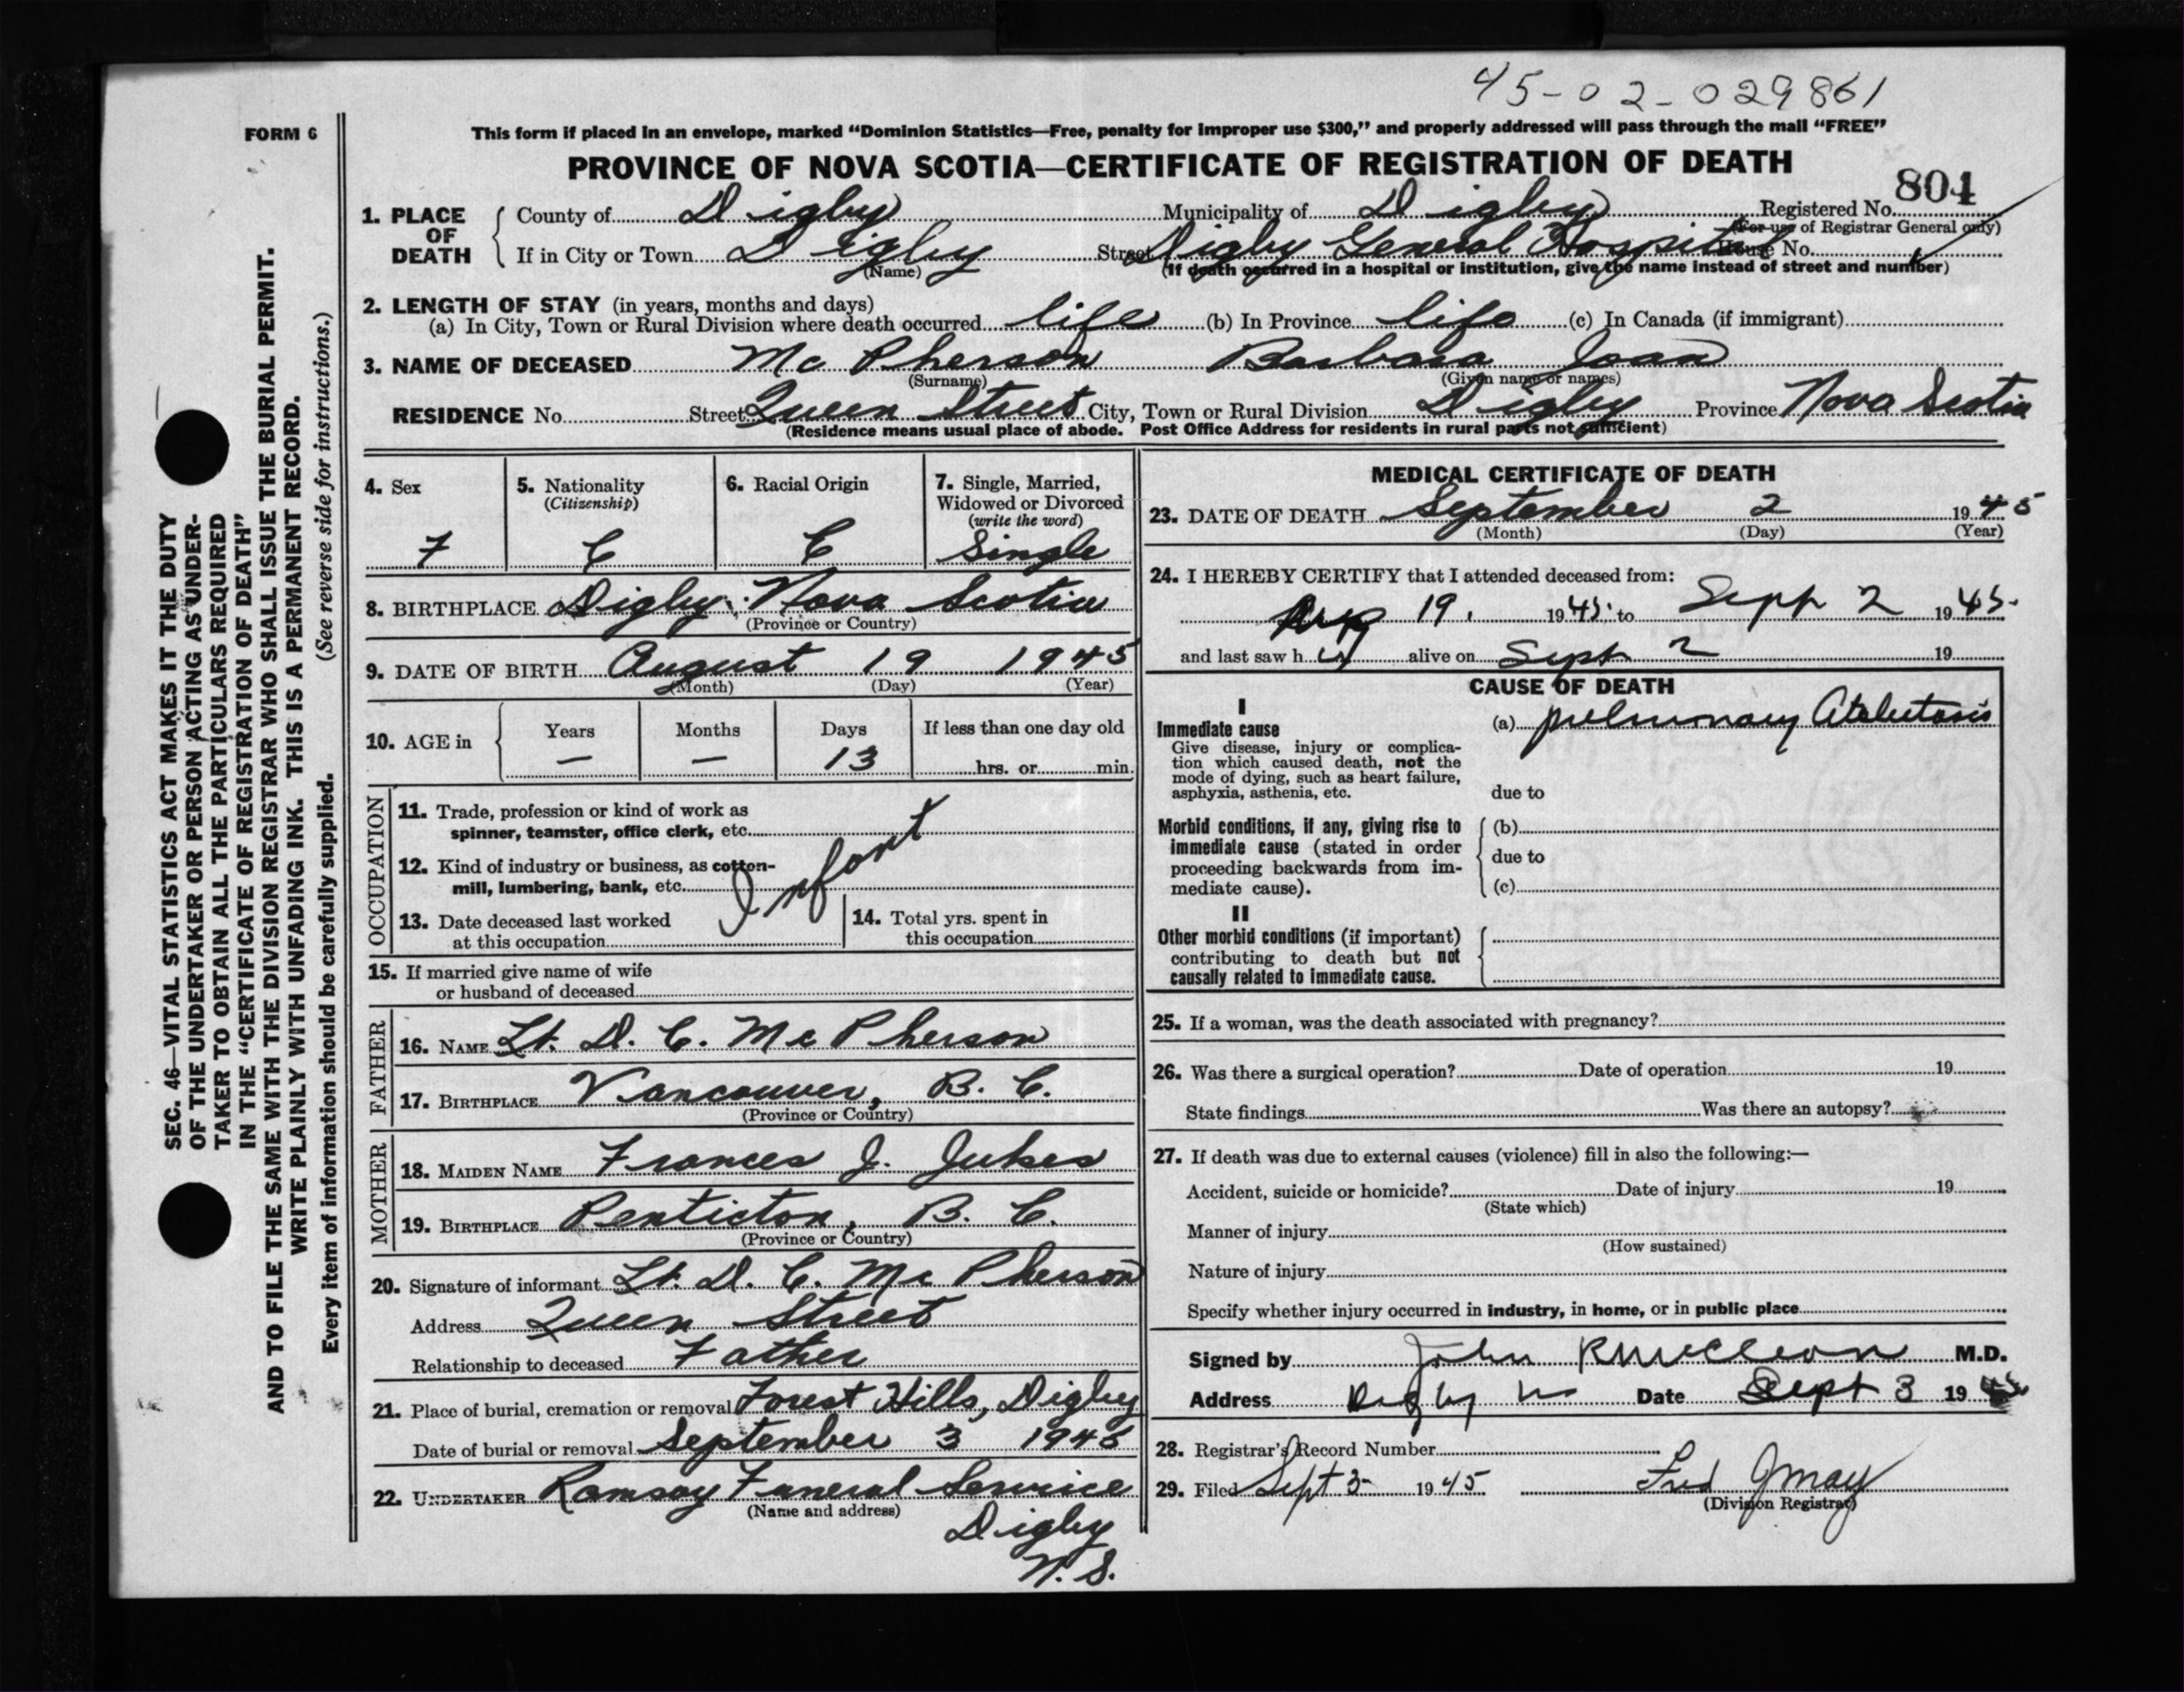 45-02-029861
FORM 6
This form if placed in an envelope, marked “Dominion Statistics—Free, penalty for improper use $300,” and properly addressed will pass through the mail “FREE”
PROVINCE OF NOVA SCOTIA—CERTIFICATE OF REGISTRATION OF DEATH
804
1. PLACE OF DEATH
County of Digby Municipality of Digby Registered No.
(For use of Registrar General only)
If in City or Town Digby Street Digby General Hospital House No.
(Name) (If death occurred in a hospital or institution, give the name instead of street and number)
2. LENGTH OF STAY (in years, months and days)
(a) In City, Town or Rural Division where death occurred life (b) In Province life (c) In Canada (if immigrant)
3. NAME OF DECEASED Mc Pherson Barbara Joan
(Surname) (Given name or names)
RESIDENCE No. Street Queen Street City, Town or Rural Division Digby Province Nova Scotia
(Residence means usual place of abode. Post Office Address for residents in rural parts not sufficient)
4. Sex
F
5. Nationality
(Citizenship)
C
6. Racial Origin
C
7. Single, Married,
Widowed or Divorced
(write the word)
Single
8. BIRTHPLACE Digby, Nova Scotia
(Province or Country)
9. DATE OF BIRTH August 19 1945
(Month) (Day) (Year)
10. AGE in
Years Months Days If less than one day old
— — 13 hrs. or min.
OCCUPATION
11. Trade, profession or kind of work as
spinner, teamster, office clerk, etc.
12. Kind of industry or business, as cotton-
mill, lumbering, bank, etc.
Infant
13. Date deceased last worked
at this occupation
14. Total yrs. spent in
this occupation
15. If married give name of wife
or husband of deceased
FATHER
16. NAME Lt. D. C. Mc Pherson
17. BIRTHPLACE Vancouver, B. C.
(Province or Country)
MOTHER
18. MAIDEN NAME Frances J. Jukes
19. BIRTHPLACE Penticton, B. C.
(Province or Country)
20. Signature of informant Lt. D. C. Mc Pherson
Address Queen Street
Relationship to deceased Father
21. Place of burial, cremation or removal Forest Hills, Digby
Date of burial or removal September 3 1945
22. UNDERTAKER Ramsay Funeral Service
(Name and address)
Digby
N. S.
MEDICAL CERTIFICATE OF DEATH
23. DATE OF DEATH September 2 1945
(Month) (Day) (Year)
24. I HEREBY CERTIFY that I attended deceased from:
Aug 19, 1945. to Sept 2 1945.
and last saw her alive on Sept 2 19
CAUSE OF DEATH
I
Immediate cause
Give disease, injury or complica-
tion which caused death, not the
mode of dying, such as heart failure,
asphyxia, asthenia, etc.
(a) pulmonary Atelectasis
due to
Morbid conditions, if any, giving rise to
immediate cause (stated in order
proceeding backwards from im-
mediate cause).
(b)
due to
(c)
II
Other morbid conditions (if important)
contributing to death but not
causally related to immediate cause.
25. If a woman, was the death associated with pregnancy?
26. Was there a surgical operation? Date of operation 19
State findings Was there an autopsy?
27. If death was due to external causes (violence) fill in also the following:—
Accident, suicide or homicide? Date of injury 19
(State which)
Manner of injury
(How sustained)
Nature of injury
Specify whether injury occurred in industry, in home, or in public place
Signed by John R McCleave M.D.
Address Digby NS Date Sept 3 1945
28. Registrar's Record Number
29. Filed Sept 3 1945 Fred J May
(Division Registrar)
SEC. 46—VITAL STATISTICS ACT MAKES IT THE DUTY
OF THE UNDERTAKER OR PERSON ACTING AS UNDER-
TAKER TO OBTAIN ALL THE PARTICULARS REQUIRED
IN THE “CERTIFICATE OF REGISTRATION OF DEATH”
AND TO FILE THE SAME WITH THE DIVISION REGISTRAR WHO SHALL ISSUE THE BURIAL PERMIT.
WRITE PLAINLY WITH UNFADING INK. THIS IS A PERMANENT RECORD.
Every item of information should be carefully supplied. (See reverse side for instructions.)